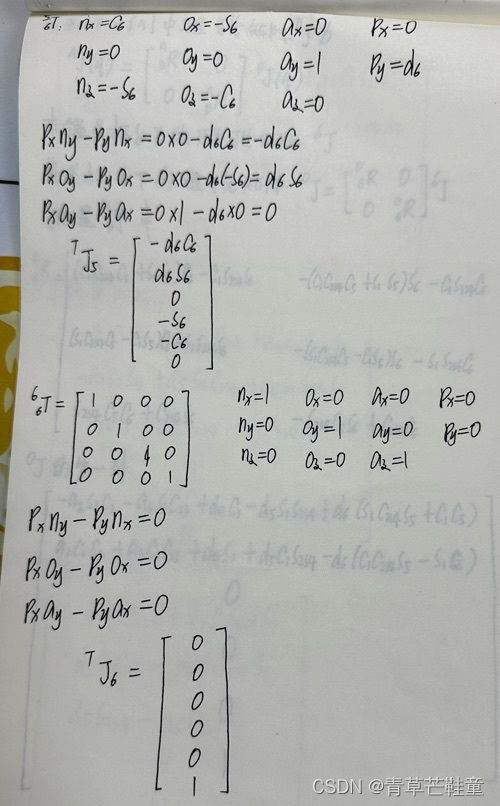 ⁵₆T: nx=C6 ox=-S6 ax=0 Px=0
ny=0 oy=0 ay=1 Py=d6
nz=-S6 oz=-C6 az=0
Pxny-Pynx=0×0-d6C6=-d6C6
Pxoy-Pyox=0×0-d6(-S6)=d6S6
Pxay-Pyax=0×1-d6×0=0
ᵀJ5=
-d6C6
d6S6
0
-S6
-C6
0
⁶₆T=
1 0 0 0
0 1 0 0
0 0 1 0
0 0 0 1
nx=1 ox=0 ax=0 Px=0
ny=0 oy=1 ay=0 Py=0
nz=0 oz=0 az=1
Pxny-Pynx=0
Pxoy-Pyox=0
Pxay-Pyax=0
ᵀJ6=
0
0
0
0
0
1
CSDN @青草芒鞋童